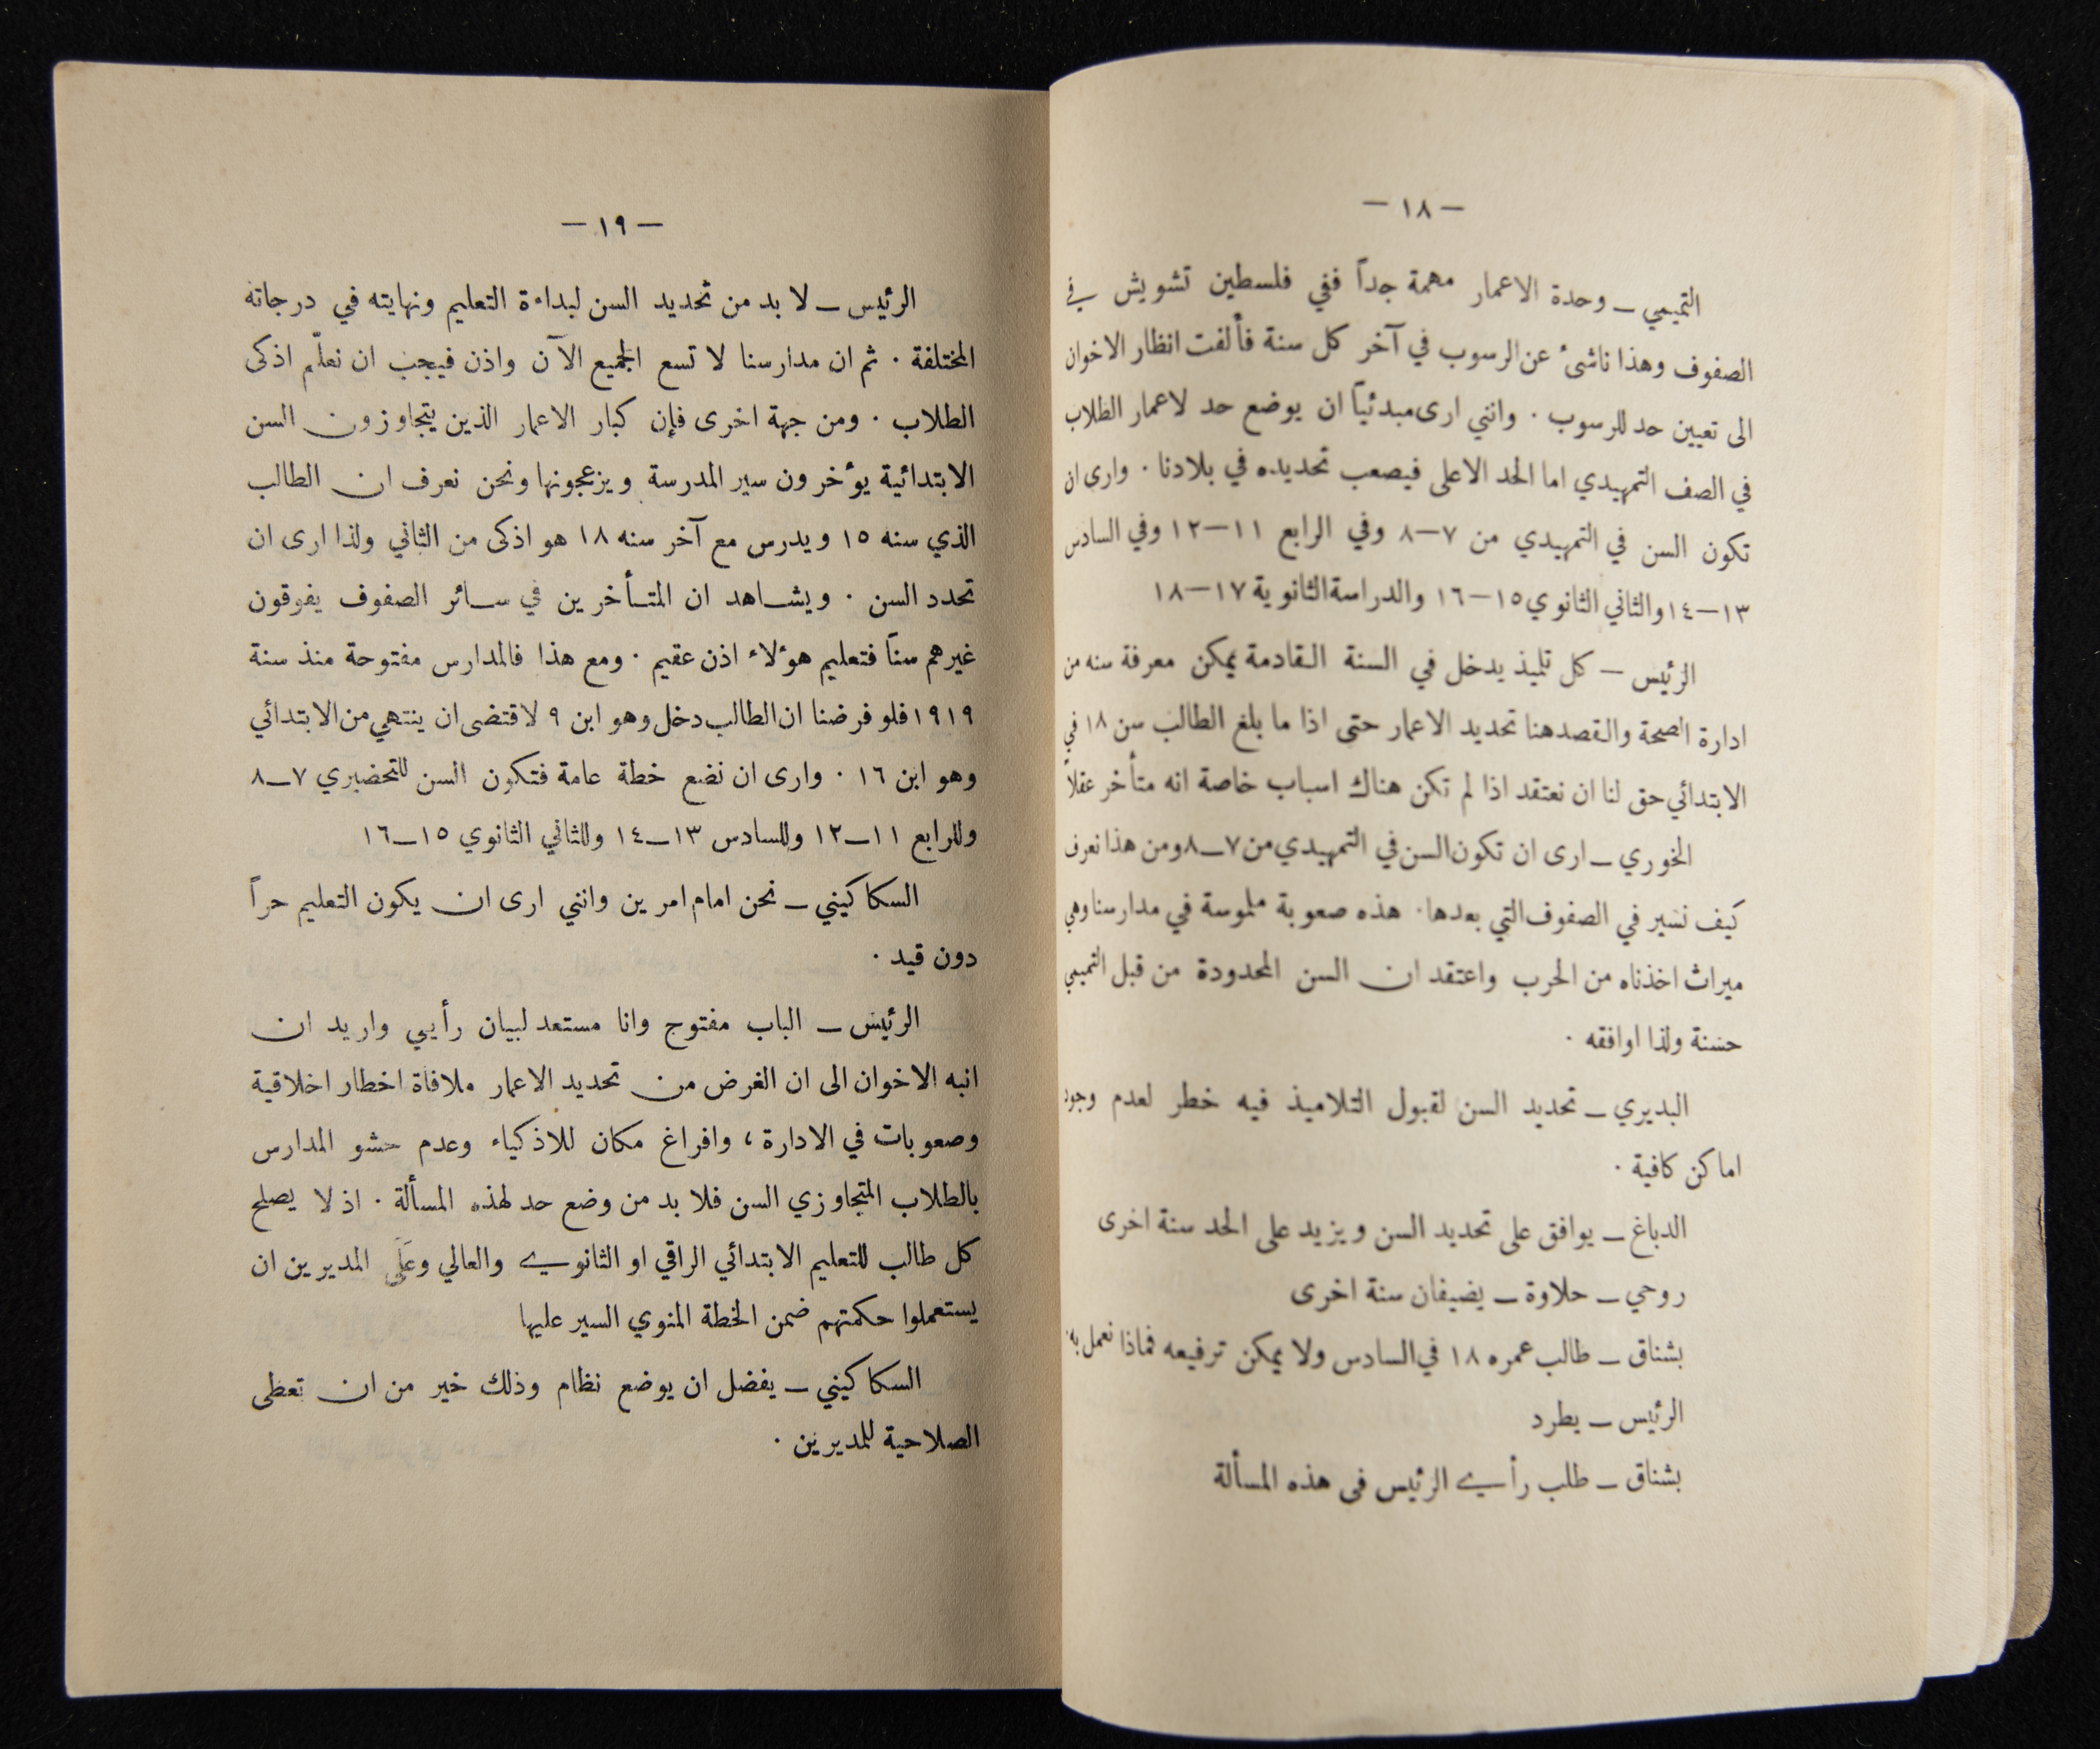 — ١٨ —
التميمي — وحدة الاعمار مهمة جداً ففي فلسطين تشويش في
الصفوف وهذا ناشئ عن الرسوب في آخر كل سنة فألفت انظار الاخوان
الى تعيين حد للرسوب . وانني ارى مبدئياً ان يوضع حد لاعمار الطلاب
في الصف التمهيدي اما الحد الاعلى فيصعب تحديده في بلادنا . وارى ان
تكون السن في التمهيدي من ٧—٨ وفي الرابع ١١—١٢ وفي السادس
١٣—١٤ والثاني الثانوي ١٥—١٦ والدراسة الثانوية ١٧—١٨
الرئيس — كل تلميذ يدخل في السنة القادمة يمكن معرفة سنه من
ادارة الصحة والقصد هنا تحديد الاعمار حتى اذا ما بلغ الطالب سن ١٨ في
الابتدائي حق لنا ان نعتقد اذا لم تكن هناك اسباب خاصة انه متأخر عقلاً
الخوري — ارى ان تكون السن في التمهيدي من ٧—٨ ومن هذا نعرف
كيف نسير في الصفوف التي بعدها . هذه صعوبة ملموسة في مدارسنا وهي
ميراث اخذناه من الحرب واعتقد ان السن المحدودة من قبل التميمي
حسنة ولذا اوافقه .
البديري — تحديد السن لقبول التلاميذ فيه خطر لعدم وجود
اماكن كافية .
الدباغ — يوافق على تحديد السن ويزيد على الحد سنة اخرى
روحي — حلاوة — يضيفان سنة اخرى
بشناق — طالب عمره ١٨ في السادس ولا يمكن ترفيعه فماذا نعمل به .
الرئيس — يطرد
بشناق — طلب رأي الرئيس في هذه المسألة
— ١٩ —
الرئيس — لا بد من تحديد السن لبداءة التعليم ونهايته في درجاته
المختلفة . ثم ان مدارسنا لا تسع الجميع الآن واذن فيجب ان نعلّم اذكى
الطلاب . ومن جهة اخرى فإن كبار الاعمار الذين يتجاوزون السن
الابتدائية يؤخرون سير المدرسة ويزعجونها ونحن نعرف ان الطالب
الذي سنه ١٥ ويدرس مع آخر سنه ١٨ هو اذكى من الثاني ولذا ارى ان
تحدد السن . ويشاهد ان المتأخرين في سائر الصفوف يفوقون
غيرهم سناً فتعليم هؤلاء اذن عقيم . ومع هذا فالمدارس مفتوحة منذ سنة
١٩١٩ فلو فرضنا ان الطالب دخل وهو ابن ٩ لاقتضى ان ينتهي من الابتدائي
وهو ابن ١٦ . وارى ان نضع خطة عامة فتكون السن للتحضيري ٧—٨
وللرابع ١١—١٢ وللسادس ١٣—١٤ وللثاني الثانوي ١٥—١٦
السكاكيني — نحن امام امرين وانني ارى ان يكون التعليم حراً
دون قيد .
الرئيس — الباب مفتوح وانا مستعد لبيان رأيي واريد ان
انبه الاخوان الى ان الغرض من تحديد الاعمار ملافاة اخطار اخلاقية
وصعوبات في الادارة ، وافراغ مكان للاذكياء وعدم حشو المدارس
بالطلاب المتجاوزي السن فلا بد من وضع حد لهذه المسألة . اذ لا يصلح
كل طالب للتعليم الابتدائي الراقي او الثانوي والعالي وعَلَى المديرين ان
يستعملوا حكمتهم ضمن الخطة المنوي السير عليها
السكاكيني — يفضل ان يوضع نظام وذلك خير من ان تعطى
الصلاحية للمديرين .